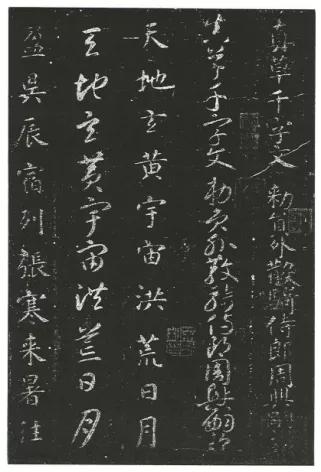 真草千字文 勅員外散騎侍郎周興嗣
真草千字文 勅員外散騎侍郎周興嗣
天地玄黃宇宙洪荒日月
天地玄黃宇宙洪荒日月
盈昃辰宿列張寒来暑往